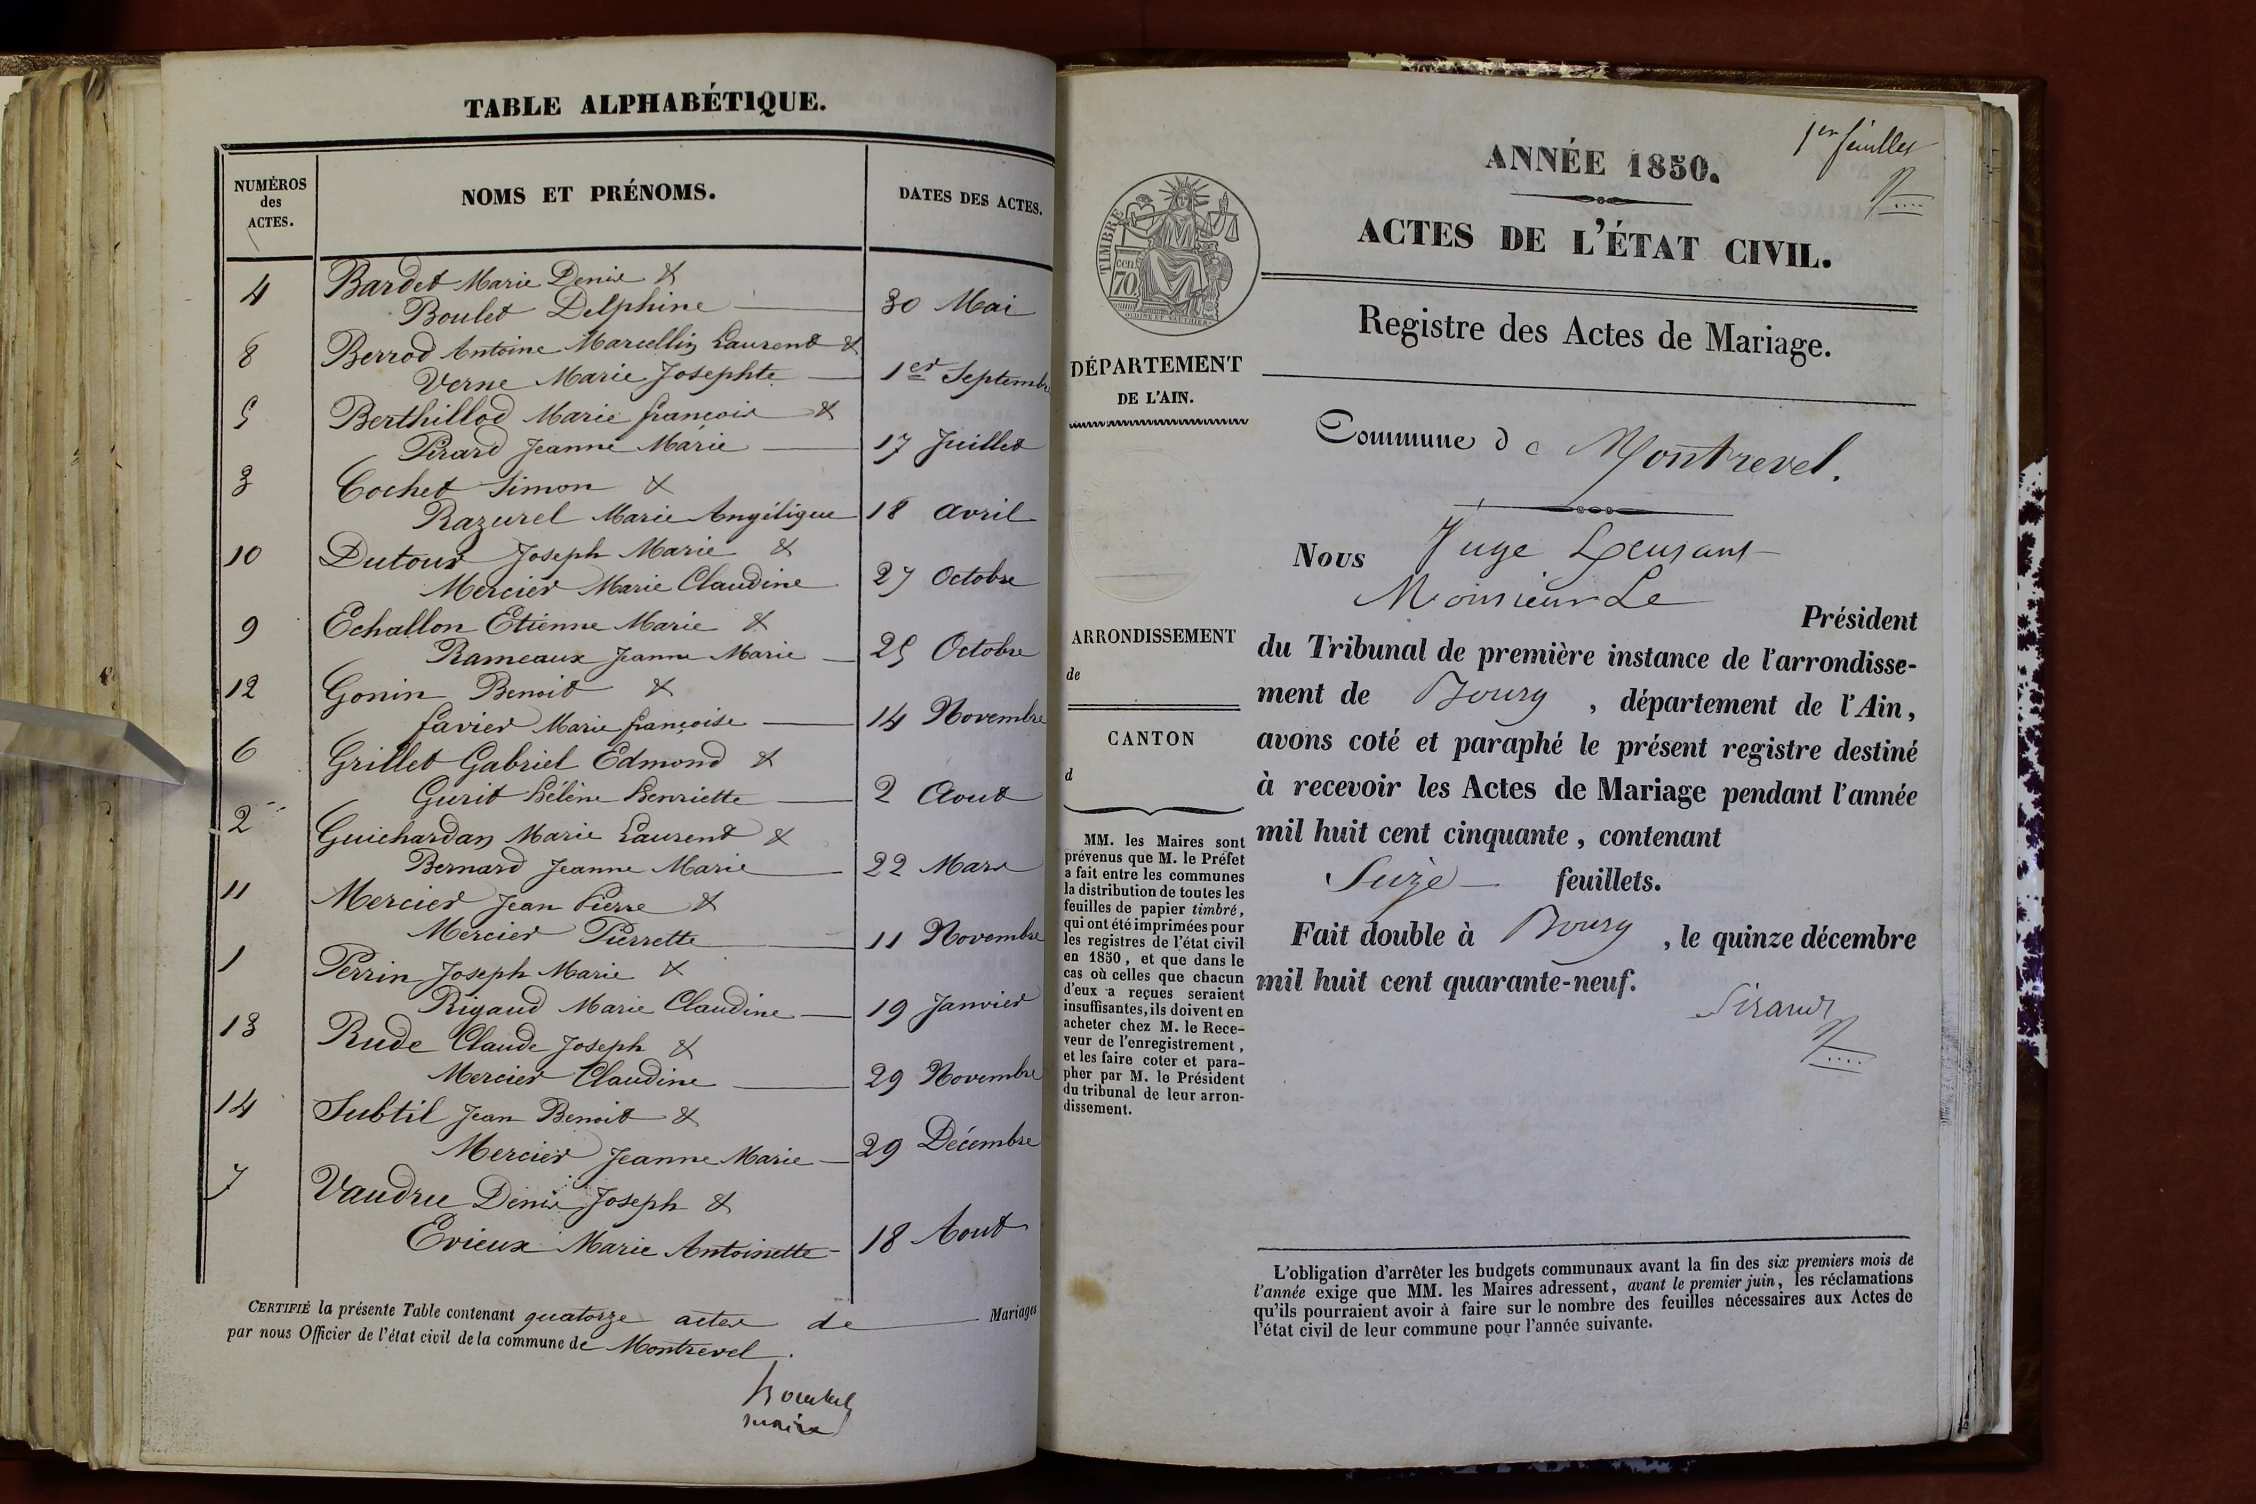 TABLE ALPHABÉTIQUE.
NUMÉROS des ACTES.
NOMS ET PRÉNOMS.
DATES DES ACTES.
4 Bardet Marie Denis &
Boulet Delphine 30 Mai
8 Berrod Antoine Marcellin Laurent &
Verne Marie Josephte 1er Septembre
5 Berthillod Marie françois &
Pirard Jeanne Marie 17 Juillet
3 Cochet Simon &
Razurel Marie Angélique 18 avril
10 Dutour Joseph Marie &
Mercier Marie Claudine 27 Octobre
9 Echallon Etienne Marie &
Rameaux Jeanne Marie 25 Octobre
12 Gonin Benoit &
favier Marie françoise 14 Novembre
6 Grillet Gabriel Edmond &
Gurit hélène henriette 2 Aout
2 Guichardan Marie Laurent &
Bernard Jeanne Marie 22 Mars
11 Mercier Jean Pierre &
Mercier Pierrette 11 Novembre
1 Perrin Joseph Marie &
Rigaud Marie Claudine 19 Janvier
13 Rude Claude Joseph &
Mercier Claudine 29 Novembre
14 Subtil Jean Benoit &
Mercier Jeanne Marie 29 Décembre
7 Vaudru Denis Joseph &
Evieux Marie Antoinette 18 Aout
CERTIFIÉ la présente Table contenant quatorze actes de Mariages
par nous Officier de l'état civil de la commune de Montrevel.
maire
1er feuillet
ANNÉE 1850.
ACTES DE L'ÉTAT CIVIL.
Registre des Actes de Mariage.
TIMBRE
70 cent
DÉPARTEMENT
DE L'AIN.
Commune de Montrevel.
ARRONDISSEMENT
de
CANTON
d
MM. les Maires sont
prévenus que M. le Préfet
a fait entre les communes
la distribution de toutes les
feuilles de papier timbré,
qui ont été imprimées pour
les registres de l'état civil
en 1850, et que dans le
cas où celles que chacun
d'eux a reçues seraient
insuffisantes, ils doivent en
acheter chez M. le Rece-
veur de l'enregistrement,
et les faire coter et para-
pher par M. le Président
du tribunal de leur arron-
dissement.
Nous Juge
Monsieur Le Président
du Tribunal de première instance de l'arrondisse-
ment de Bourg, département de l'Ain,
avons coté et paraphé le présent registre destiné
à recevoir les Actes de Mariage pendant l'année
mil huit cent cinquante, contenant
Seize feuillets.
Fait double à Bourg, le quinze décembre
mil huit cent quarante-neuf.
L'obligation d'arrêter les budgets communaux avant la fin des six premiers mois de
l'année exige que MM. les Maires adressent, avant le premier juin, les réclamations
qu'ils pourraient avoir à faire sur le nombre des feuilles nécessaires aux Actes de
l'état civil de leur commune pour l'année suivante.